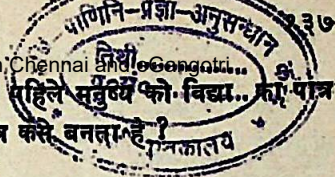 पाणिनि-प्रज्ञा-अनुसन्धान
१३७
Chennai and eGangotri
पहिले मनुष्य को विद्या.. का पात्र
कैसे बनता है ?